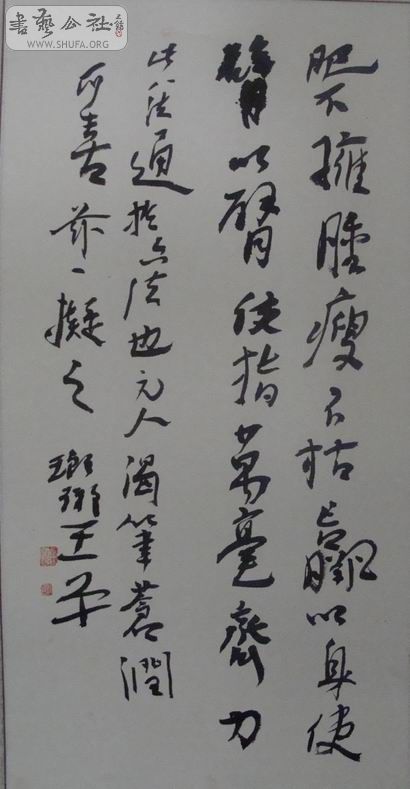 書藝公社
WWW.SHUFA.ORG
肥不擁腫瘦不枯羸以身使
臂以臂使指萬毫齊力
此八法通於六法也元人渴筆蒼潤
可喜茲一擬之
瑯琊王